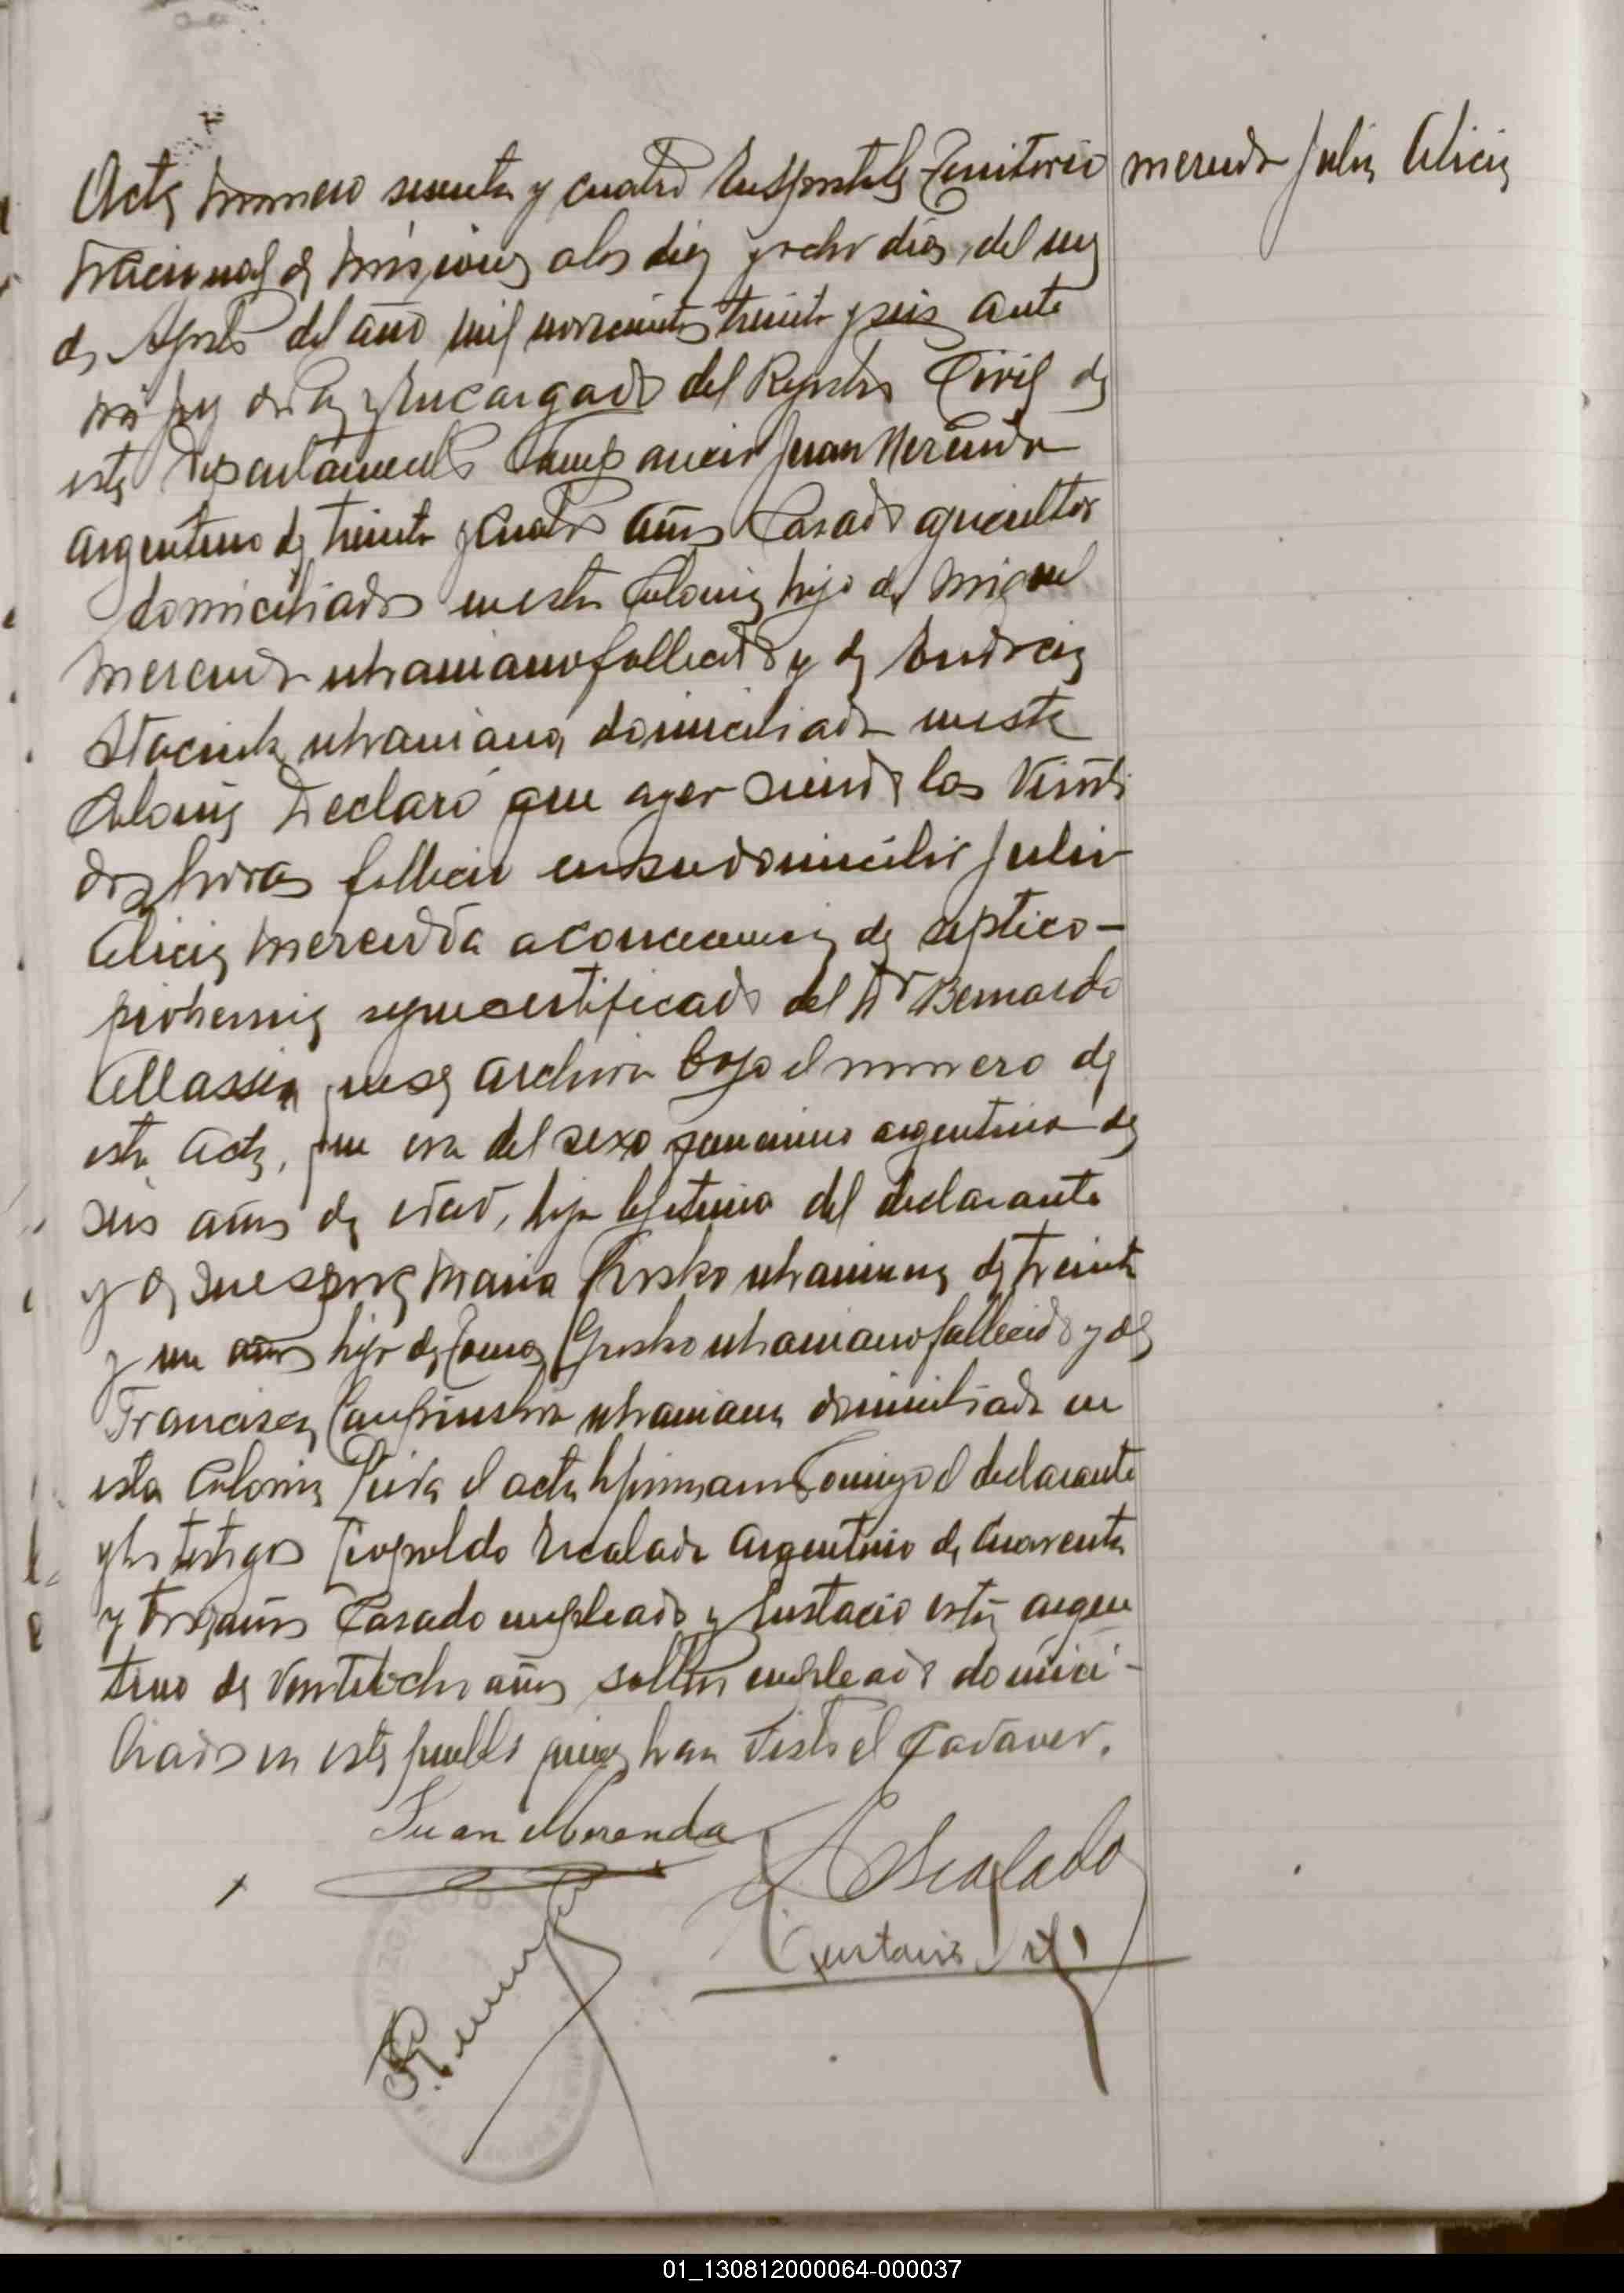 Acta numero sesenta y cuatro En Apostoles Territorio
Merenda Julia Alicia
Nacional de Misiones a los diez y ocho dias del mes
de Agosto del año mil novecientos treinta y seis ante
mi Juez de Paz y Encargado del Registro Civil de
este Departamento Comparecio Juan Merenda
argentino de treinta y cuatro años Casado agricultor
domiciliado en esta Colonia hijo de Miguel
Merenda ukraniano fallecido y de
ukraniana, domiciliada en esta
Colonia Declaró que ayer siendo las Vinti
dos horas fallecio en su domicilio Julia
Alicia Merenda a consecuencia de septico-
piohemia segun certificado del Dr Bernardo
que se archiva bajo el numero de
esta acta, que era del sexo femenino argentina de
seis años de edad, hija lejitima del declarante
y de su esposa Maria ukraniana de treinta
y un años hija de Tomas ukraniano fallecido y de
Francisca ukraniana domiciliada en
esta Colonia Leida el acta la firmaron Comigo el declarante
y los testigos Leopoldo Escalada argentino de Cuarenta
y tres años Casado empleado y Eustacio argen
tino de Ventiocho años soltero empleado domici-
liados en este pueblo quienes han visto el Cadaver.
Juan Merenda
L Escalada
Eustacio
01_130812000064-000037